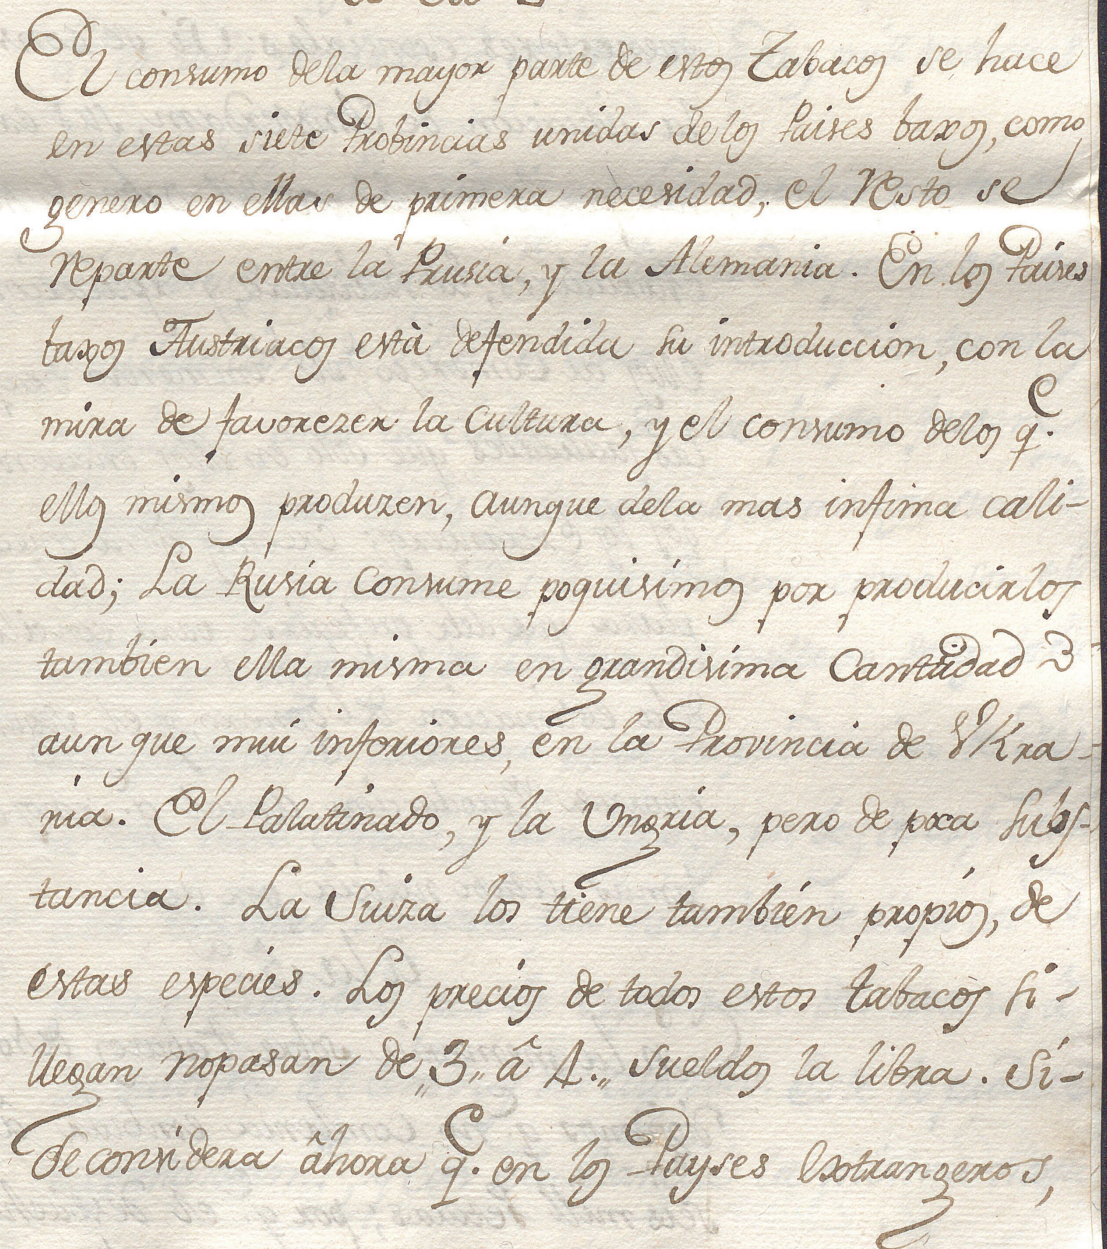 El consumo dela mayor parte de estos Tabacos se hace
en estas siete Probincias unidas delos Paises baxos, como
genero en ellas de primera necesidad, el resto se
reparte entre la Prusia, y la Alemania. En los Paises
baxos Austriacos està defendida su introduccion, con la
mira de favorezer la Cultura, y el consumo delos q.e
ellos mismos produzen, aunque dela mas infima cali-
dad; La Rusia Consume poquisimos por producirlos
tambien ella misma en grandisima Cantidad
aunque mui inferiores, en la Provincia de Vkra-
nia. El Palatinado, y la Ungria, pero de poca subs-
tancia. La Suiza los tiene tambien propios, de
estas especies. Los precios de todos estos tabacos si
llegan no pasan de „3„ â 4.„ sueldos la libra. Si-
se considera âhora q.e en los Payses extrangeros,